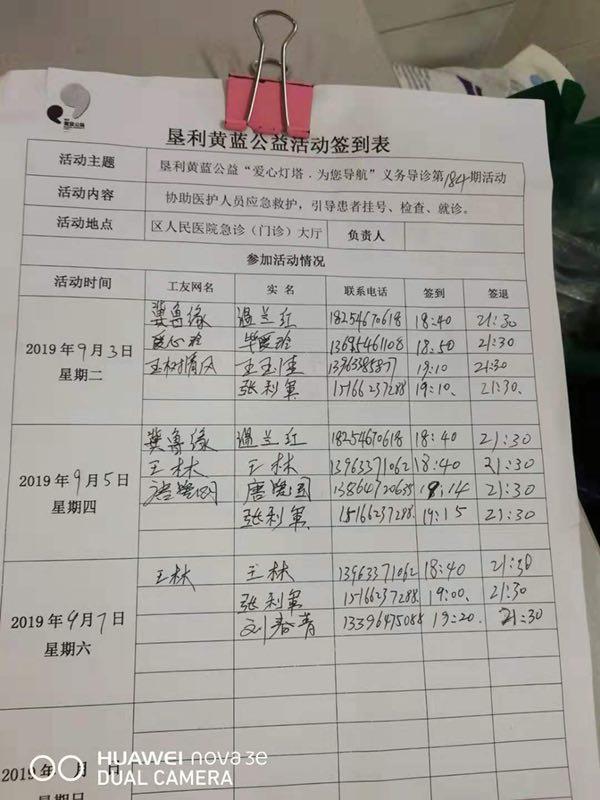 黄蓝公益
垦利黄蓝公益活动签到表
活动主题 垦利黄蓝公益“爱心灯塔.为您导航”义务导诊第184期活动
活动内容 协助医护人员应急救护，引导患者挂号、检查、就诊。
活动地点 区人民医院急诊（门诊）大厅 负责人
参加活动情况
活动时间 工友网名 实 名 联系电话 签到 签退
2019年9月3日 星期二
冀鲁缘 温兰红 18254670618 18:40 21:30
爱心玲 13685461108 18:50 21:30
玉树情风 王玉佳 1396385877 19:10 21:30
张利军 15166237288 19:10. 21:30.
2019年9月5日 星期四
冀鲁缘 温兰红 18254670618 18:40 21:30
王林 王林 13963371062 18:40 21:30
唐 13864720635 18:14 21:30
张利军 15166237288. 19:15 21:30
2019年9月7日 星期六
王林 王林 13963371062 18:40 21:30
张利军 15166237288. 19:00. 21:30
刘春菁 13396475088 19:20. 21:30
2019年 月 日
星期日
HUAWEI nova 3e
DUAL CAMERA